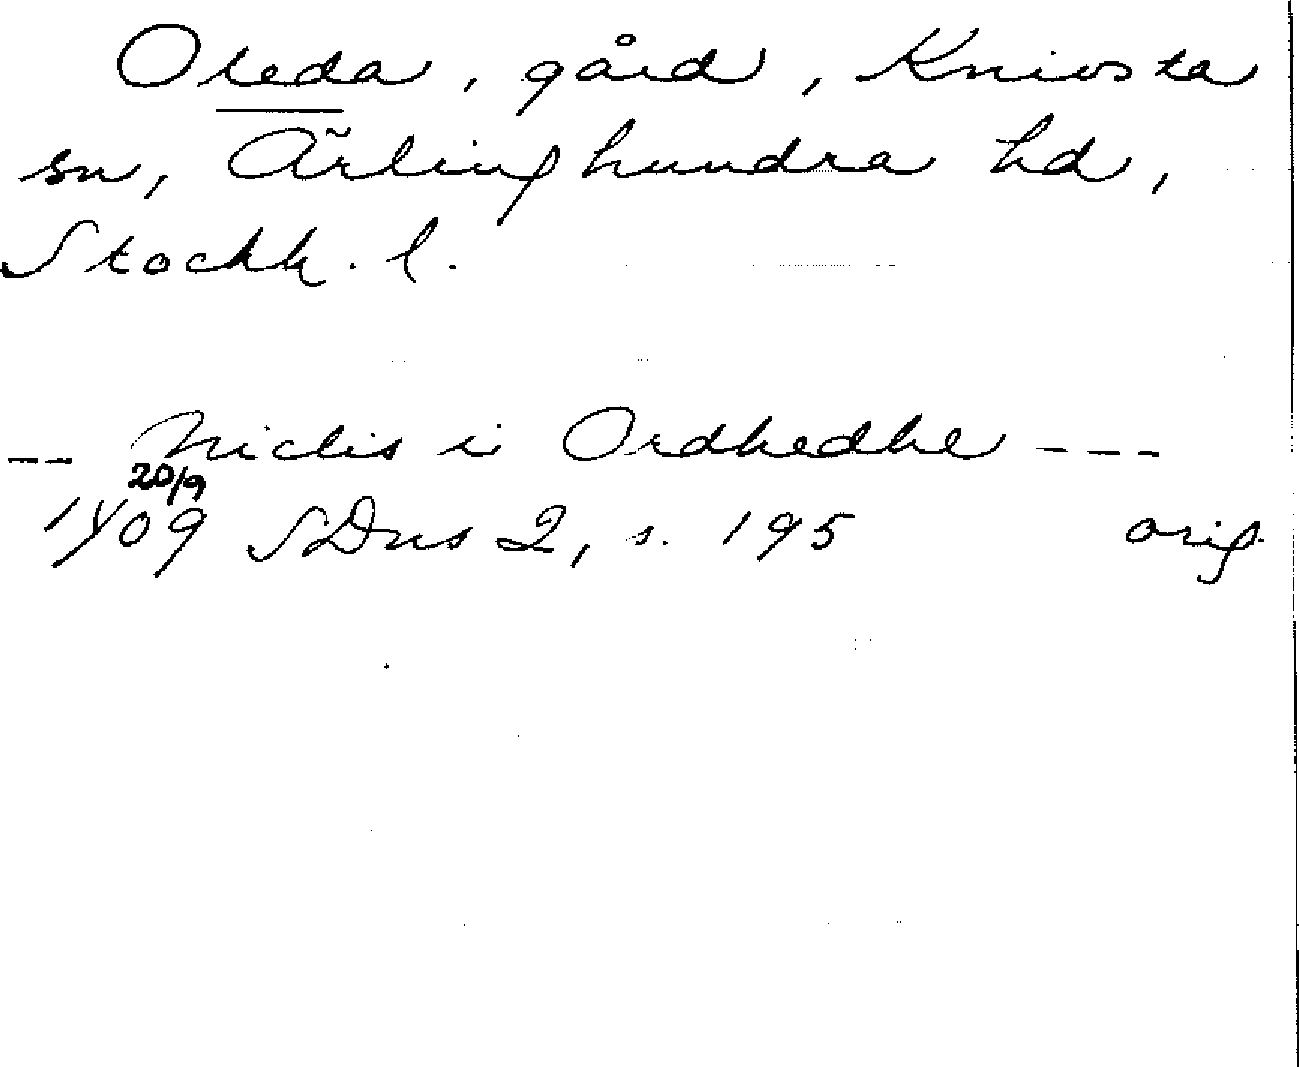 Oreda, gård, Knivsta
sn, Ärlinghundra hd,
Stockh. l.
-- Niclis i Ordhedhe ---
20/9
1409 SDns 2, s. 195 orig.